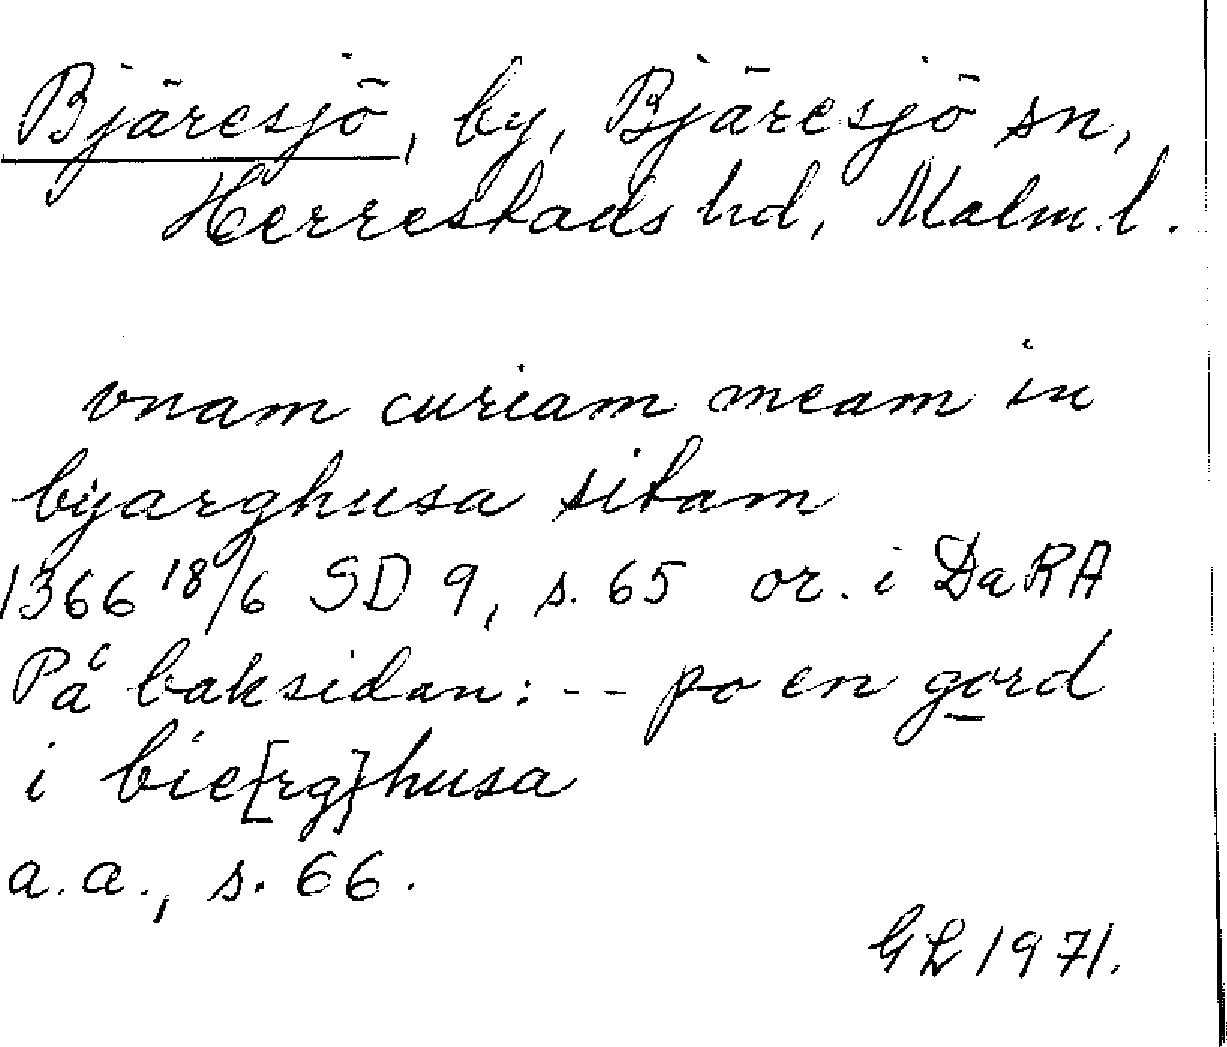 Bjäresjö, by, Bjäresjö sn,
Herrestads hd, Malm.l.
vnam curiam meam in
byarghusa sitam
1366 18/6 SD 9, s. 65 or. i DaRA
På baksidan: -- po en gord
i bie[rg]husa
a.a., s. 66.
GL 1971.